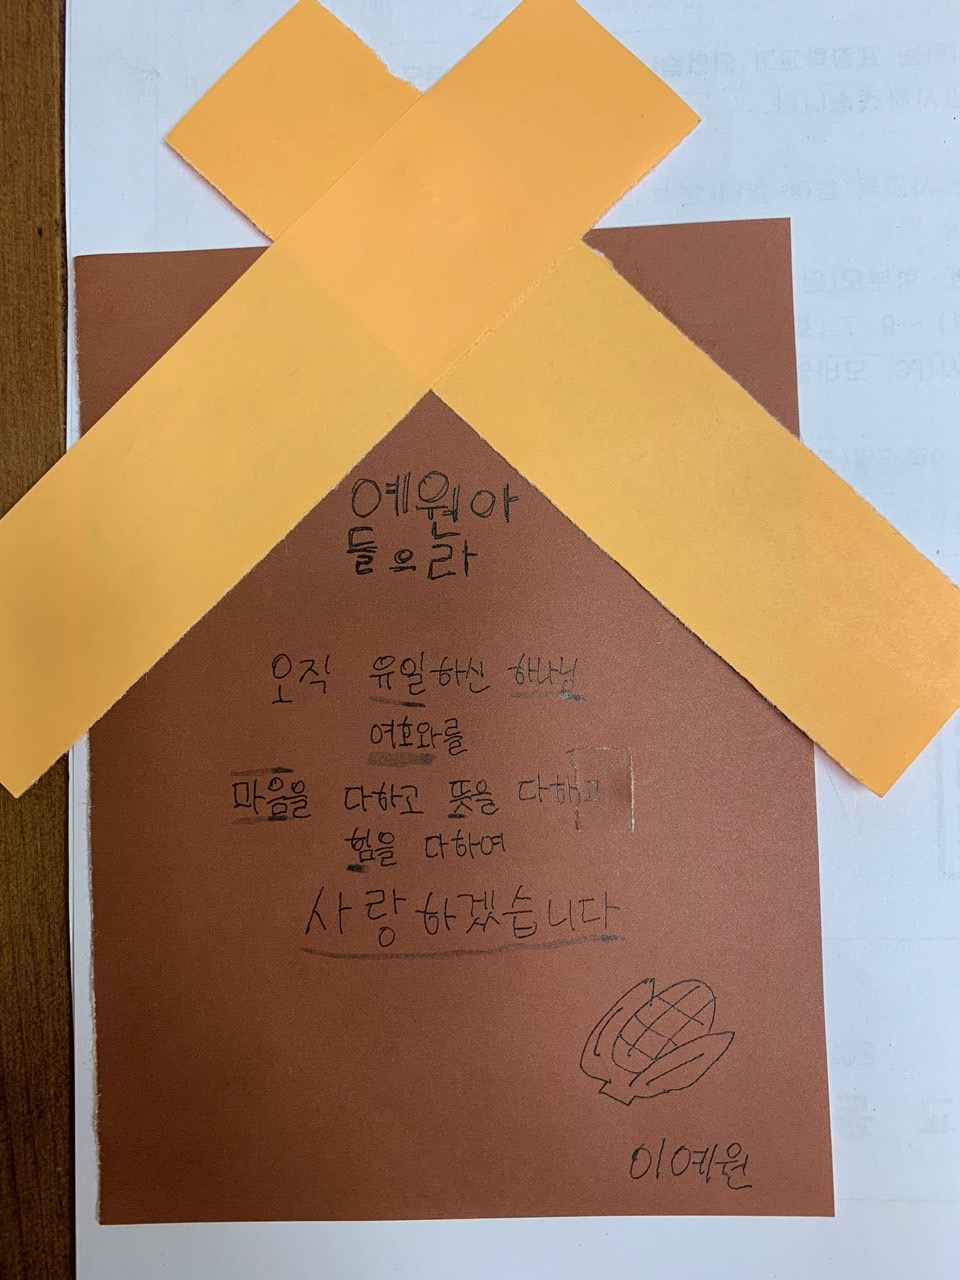 예원아
들으라
오직 유일하신 하나님
여호와를
마음을 다하고 뜻을 다하고
힘을 다하여
사랑하겠습니다
이예원